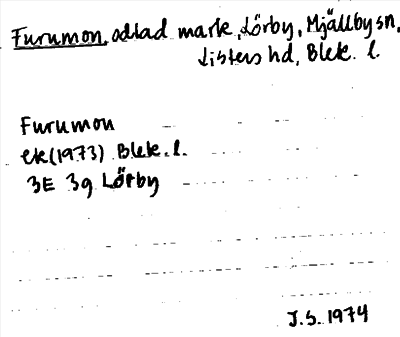 Furumon, odlad mark, Lörby, Mjällby sn,
Listers hd, Blek. l.
Furumon
ek(1973) Blek. l.
3E 3g Lörby
J.S. 1974